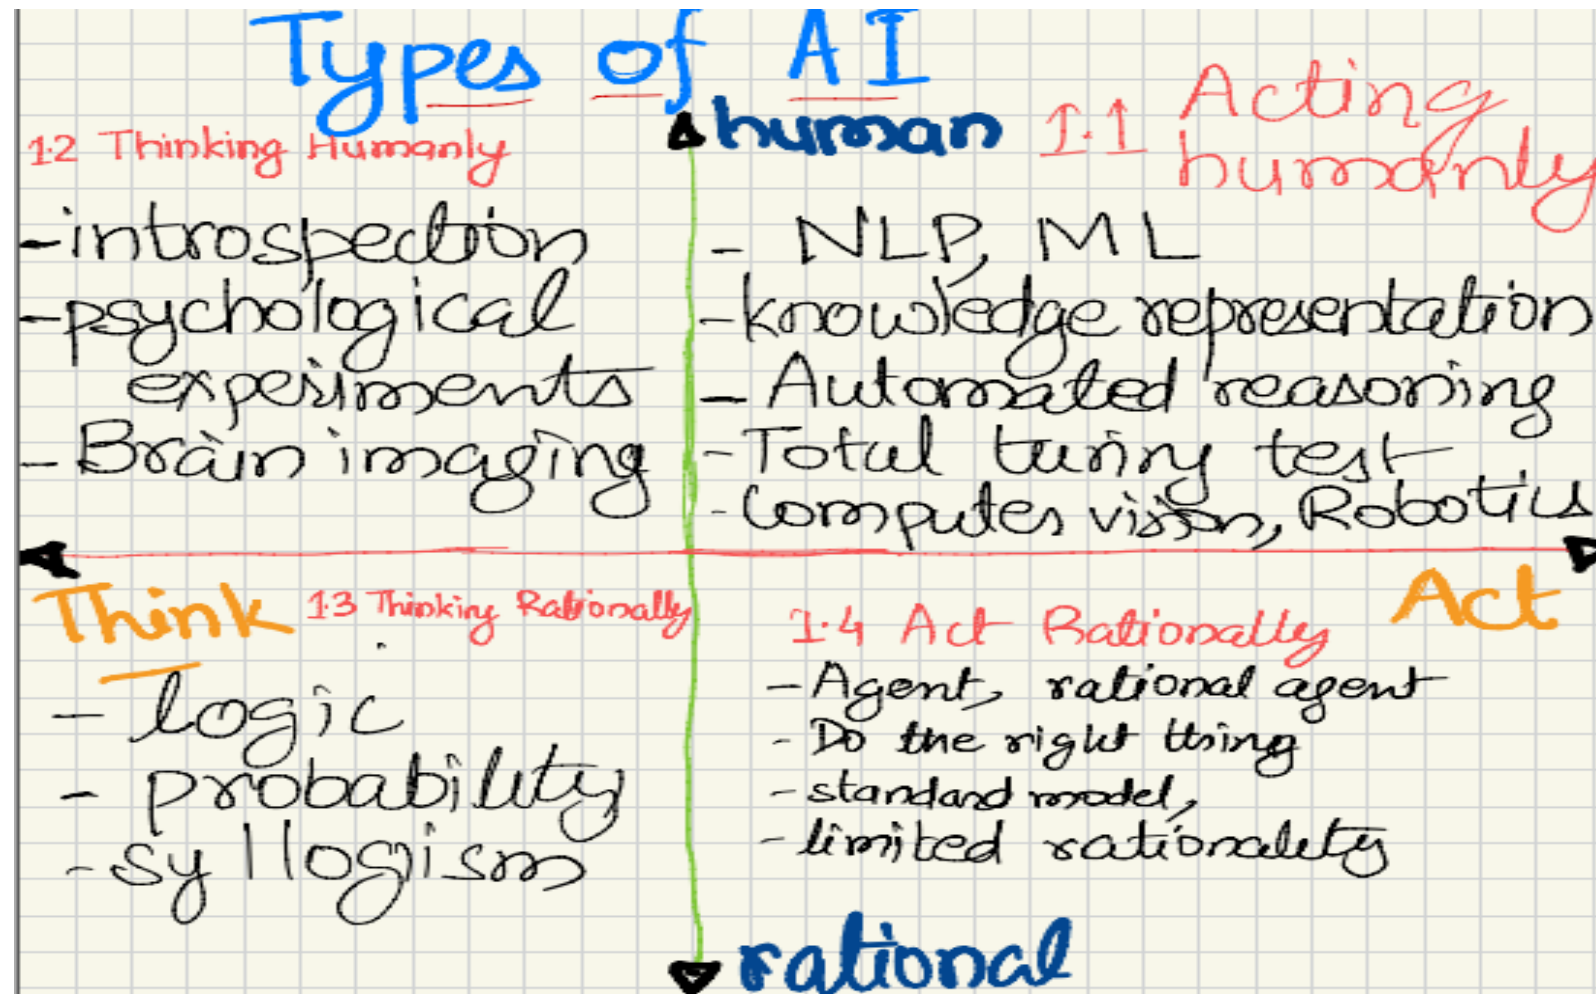 Types of AI
human
1.2 Thinking Humanly
- introspection
- psychological
experiments
- Brain imaging
1.1 Acting
humanly
- NLP, ML
- knowledge representation
- Automated reasoning
- Total turing test
- Computer vision, Robotics
Think
1.3 Thinking Rationally
- logic
- probability
- syllogism
Act
1.4 Act Rationally
- Agent, rational agent
- Do the right thing
- standard model,
- limited rationality
rational